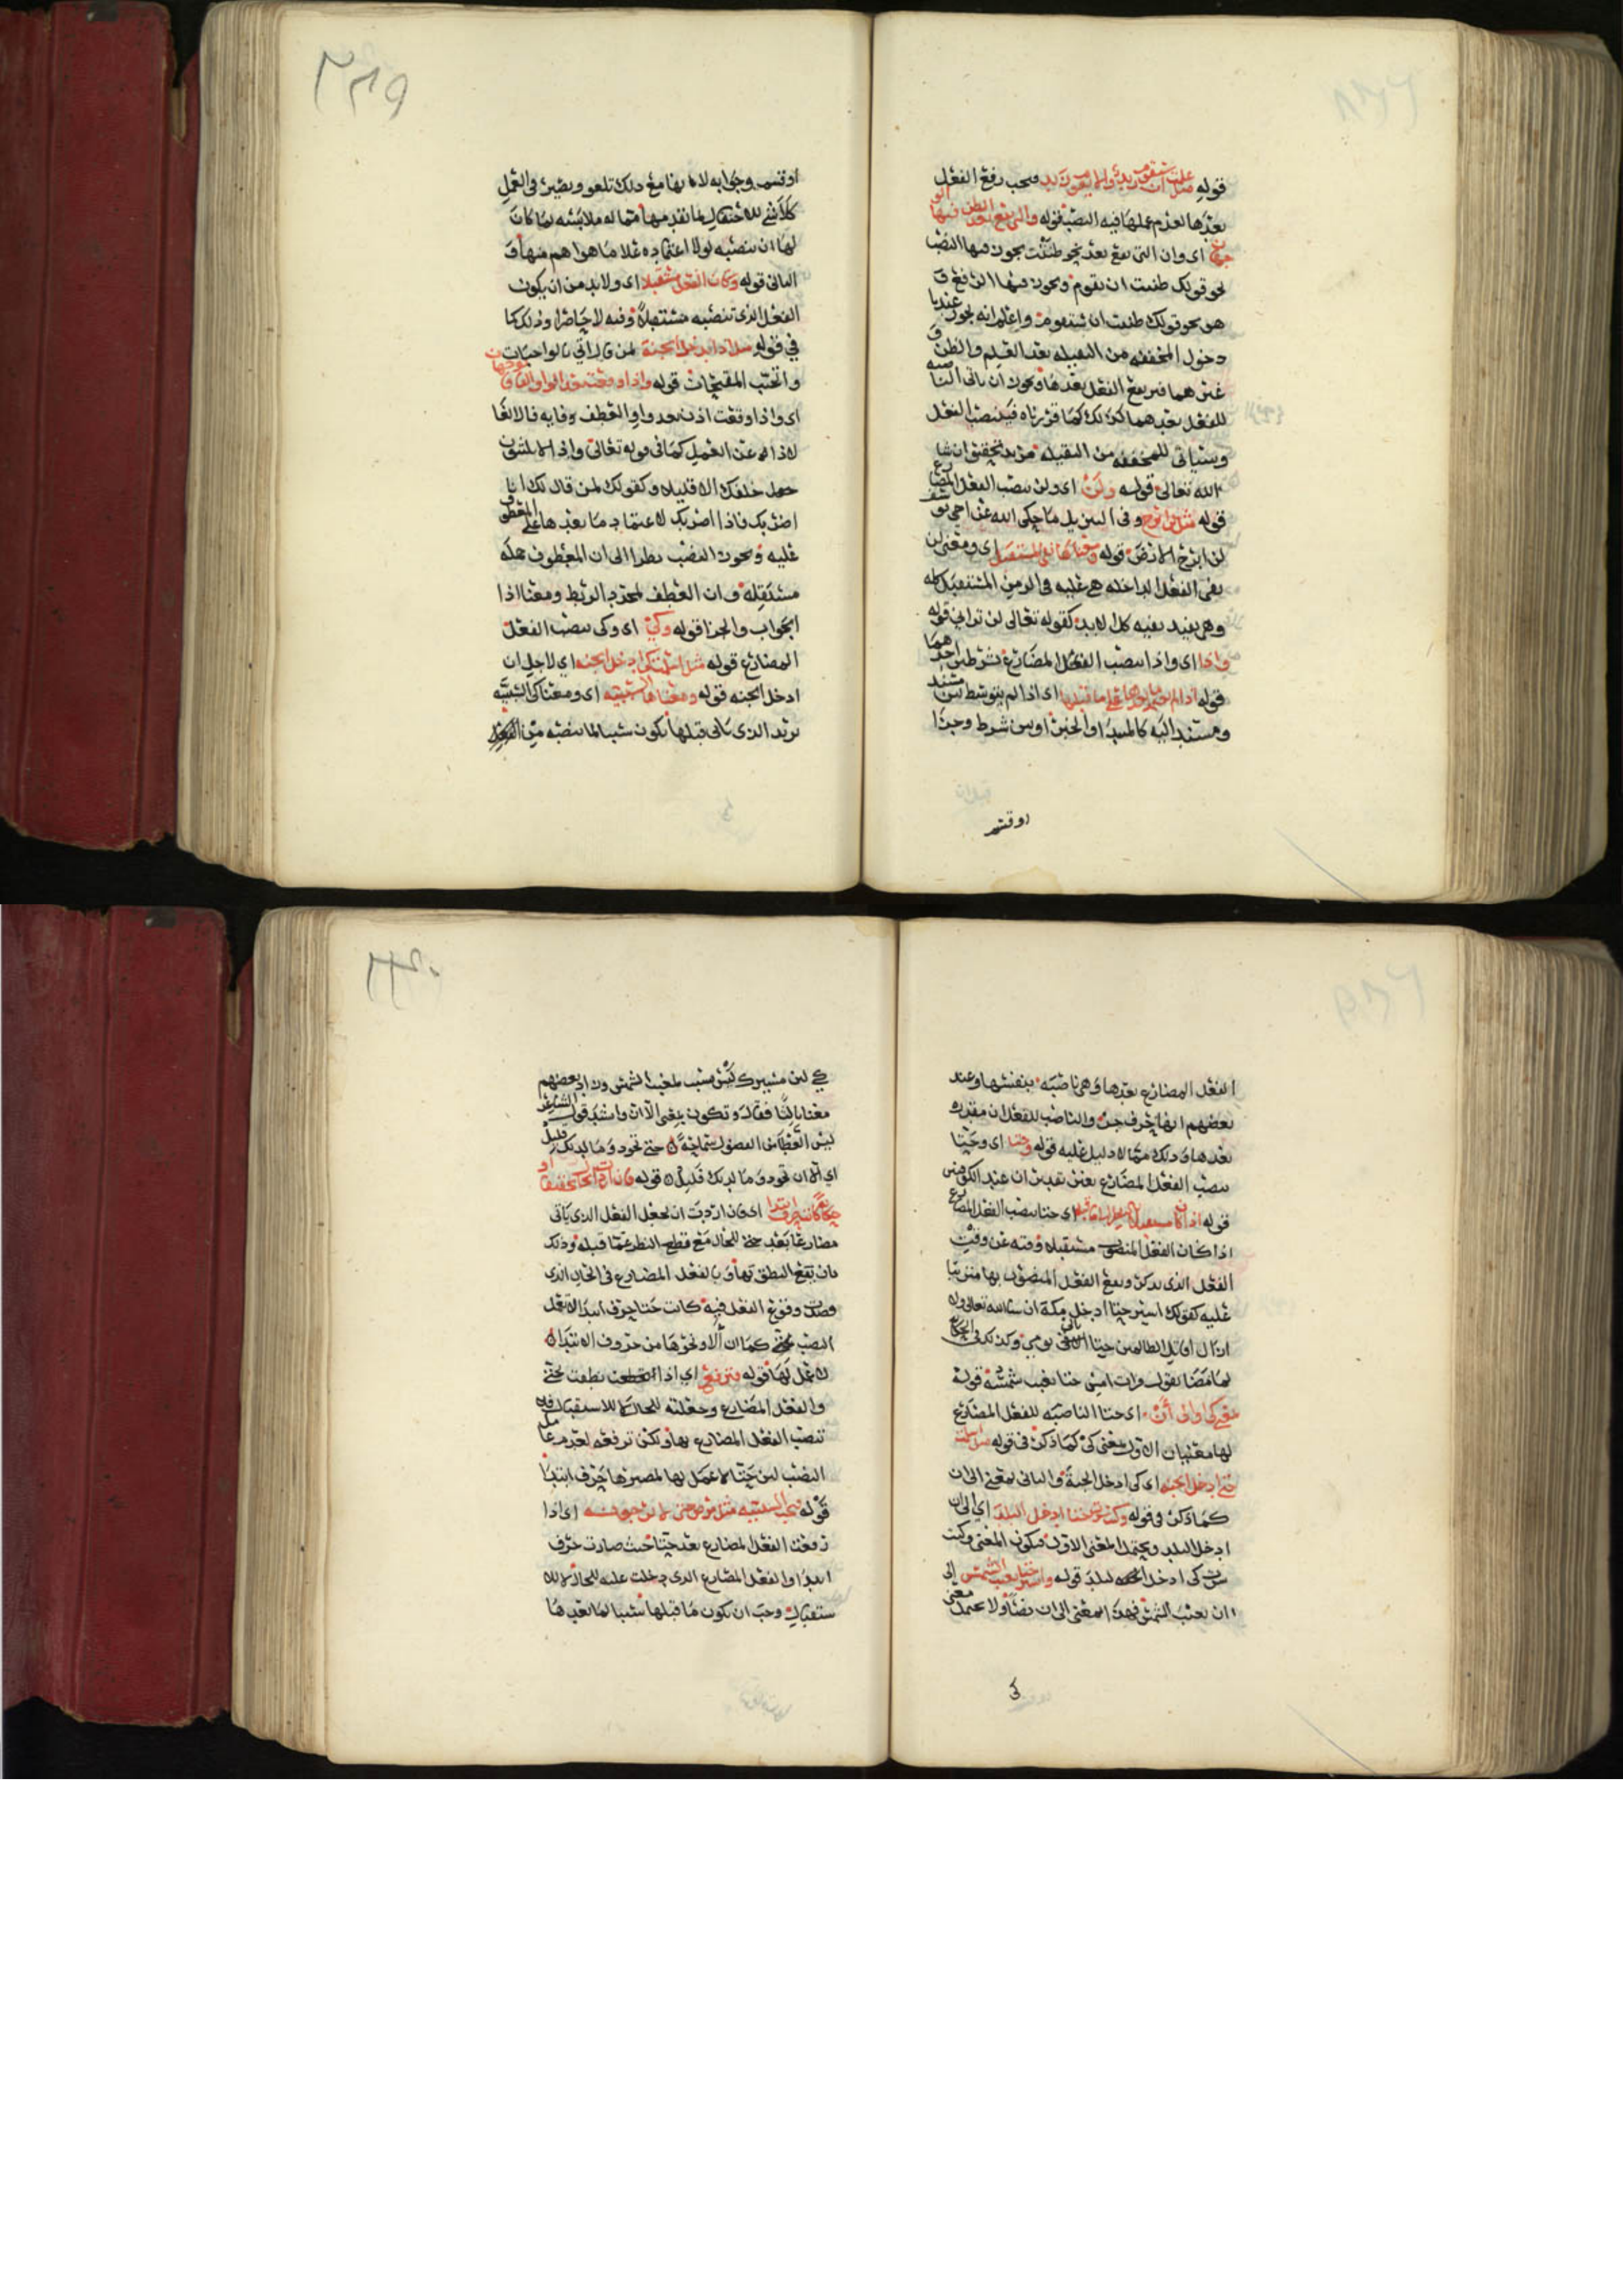 قوله مثل علمت ان سيقوم زيد وان لا يقوم زيد ويجب رفع الفعل
بعدها لعدم عملها فيه النصب قوله والتي تقع بعد الظن فيها الو
جهان اي وان التي تقع بعد نحو ظننت يجوز فيها النصب
نحو قولك ظننت ان يقوم ويجوز فيها الرفع و
هو نحو قولك ظننت ان سيقوم واعلم انه يجوز عندنا
دخول المخففه من الثقيله بعد العلم والظن و
غيرهما فيرفع الفعل بعدها ويجوز ان تاتي الناصبه
للفعل بعدهما كذلك كما قررناه فينصب الفعل
وسياتي للمخففه من الثقيله مزيد تحقيق ان شا
الله تعالى قوله ولن اي ولن ينصب الفعل المضارع
قوله مثل لن ابرح وفي التنزيل ما حكى الله عن اخي يوسف
لن ابرح الارض قوله ومعناها نفي المستقبل اي ومعنى لن
نفي الفعل الداخله هي عليه في الزمن المستقبل كله
وهي يفيد نفيه كل الابد كقوله تعالى لن تراني قوله
واذا اي واذا ينصب الفعل المضارع بشرطين احدهما
قوله اذا لم يعتمد ما بعدها على ما قبلها اي اذا لم يتوسط بين مسند
ومسند اليه كالمبتدا والخبر او بين شرط وجزا
او قسم
او قسم وجوابه لانها مع ذلك تلغو وتصير في العمل
كلا شي للاحتفال بما تقدمها مما له ملابسه لما كان
لها ان تنصبه لولا اعتماده علا ما هوا هم منها و
الثاني قوله وكان الفعل مستقبلا اي ولا بد من ان يكون
الفعل الذي تنصبه مستقبلا وقته لا حاضرا وذلك كما
في قوله مثل اذا تدخل الجنة لمن قال اني بالواجبات
واتجنب المقبحات قوله واذا وقعت بعد الواو والفا فالوجهان
اي واذا وقعت اذن بعد واو العطف وفايه فالالغا
لاذا له عن العمل كما في قوله تعالى واذا لا يلبثون
خلفك الا قليلا وكقولك لمن قال لك انا
اضربك فاذا اضربك لاعتماد ما بعدها على المعطوف
عليه ويجوز النصب نظرا الى ان المعطوف جمله
مستقله وان العطف لمجرد الربط ومعنا اذا
الجواب والجزا قوله وكي اي وكي ينصب الفعل
المضارع قوله مثل اسلمت كي ادخل الجنه اي لاجل ان
ادخل الجنه قوله ومعناها السببيه اي ومعنا كي السببيه
نريد الذي ياتي قبلها يكون سببا لما تنصبه من الفعل
الفعل المضارع بعدها وهي ناصبه بنفسها وعند
بعضهم انها حرف جر والناصب للفعل ان مقدره
بعدها وذلك مما لا دليل عليه قوله وحتا اي وحتا
ينصب الفعل المضارع بغير تقدير ان عند الكوفيين
قوله اذا كان مستقبلا بالنظر الى ما قبلها اي حتا ينصب الفعل المضارع
اذا كان الفعل المنصوب مستقبلا وقته عن وقت
الفعل الذي يذكر ويقع الفعل المنصوب بها مترتبا
عليه كقولك اسير حتا ادخل مكة ان شا الله تعالى ولا
ازال اقاتل الظالمين حتا ياتي يومي وكذلك في الحكاية
لما مضا بقول وات امس حتا تغيب شمسه قوله
بمعنى كي او الى أن اي حتا الناصبه للفعل المضارع
لها معنيان الاول بمعنى كي كما ذكر في قوله مثل اسلمت
حتى ادخل الجنه اي كي ادخل الجنة والثاني بمعنى الى ان
كما ذكر في قوله وكنت سرت حتا ادخل البلد اي الى ان
ادخل البلد ويحتمل المعنى الاول فيكون المعنى وكنت
سرت كي ادخل البلد قوله واسير حتا تغيب الشمس الى
ان تغيب الشمس فهذا بمعنى الى ان نصا ولا يحتمل معنى
كي
كي لان مسيرك ليس بسبب لمغيب الشمس وزاد بعضهم
معنا ثالثا فقال وتكون بمعنى الا ان وانشد قول الشاعر
ليس العطا من الفضول سماحة حتى تجود وما لديك قليل
اي الا ان تجود وما لديك قليل قوله فان اردت الحال تحقيقا او
حكاية كانت حرف ابتدا اي فان اردت ان تجعل الفعل الذي ياتي
مضارعا بعد حتى للحال مع قطع النظر عما قبله وذلك
بان يقع النطق بها وبالفعل المضارع في الحال الذي
قصدت وقوع الفعل فيه كانت حتا حرف ابتدا لا تعمل
النصب بحتى كما ان ألا ونحوها من حروف الابتدا
لا عمل لها قوله فترفع اي اذا نطقت بحتى
والفعل المضارع وجعلته للحال لا للاستقبال فلا
تنصب الفعل المضارع بها ولكن ترفعه لعدم عامل
النصب لان حتا لا عمل لها لمصيرها حرف ابتدا
قوله وتجب السببيه مثل مرض حتى لا يرجونه اي اذا
رفعت الفعل المضارع بعد حتا حيث صارت حرف
ابتدا والفعل المضارع الذي دخلت عليه للحال لا للا
ستقبال وجب ان يكون ما قبلها سببا لما بعدها